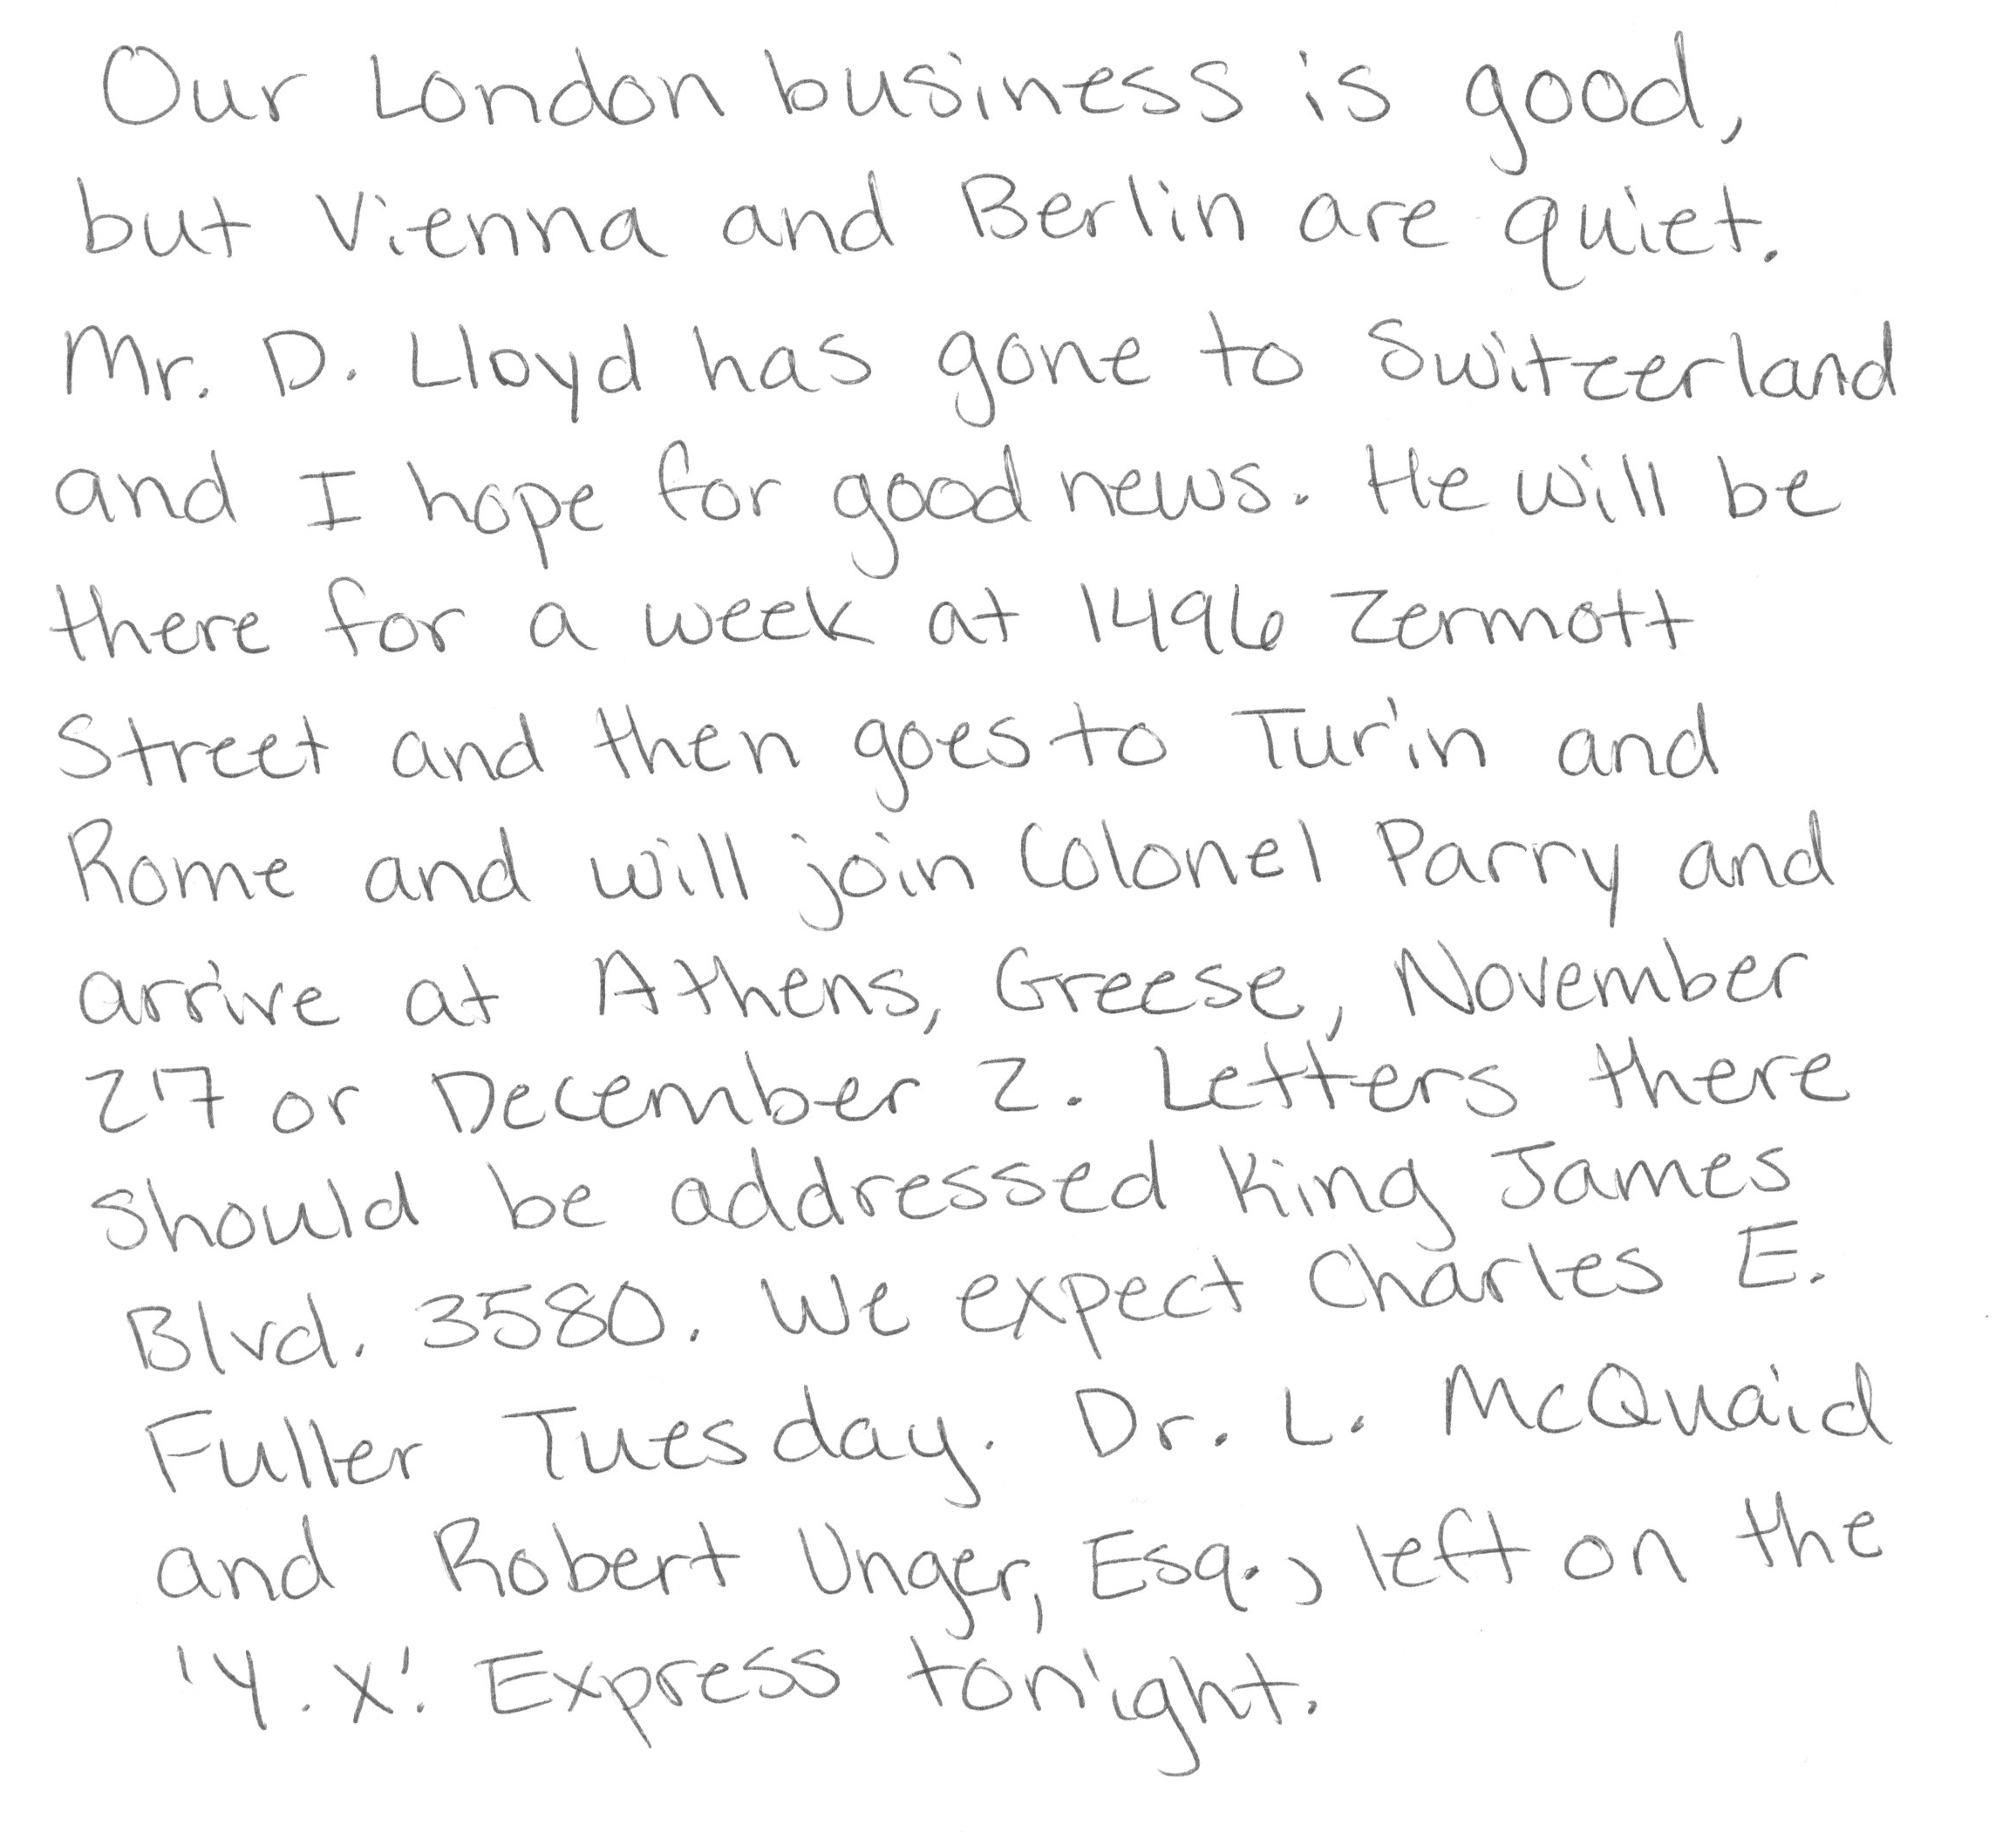 Our London business is good,
but Vienna and Berlin are quiet.
Mr. D. Lloyd has gone to Switzerland
and I hope for good news. He will be
there for a week at 1496 Zermott
Street and then goes to Turin and
Rome and will join Colonel Parry and
arrive at Athens, Greese, November
27 or December 2. Letters there
should be addressed King James
Blvd. 3580. We expect Charles E.
Fuller Tuesday. Dr. L. McQuaid
and Robert Unger, Esq., left on the
'Y. X.' Express tonight.